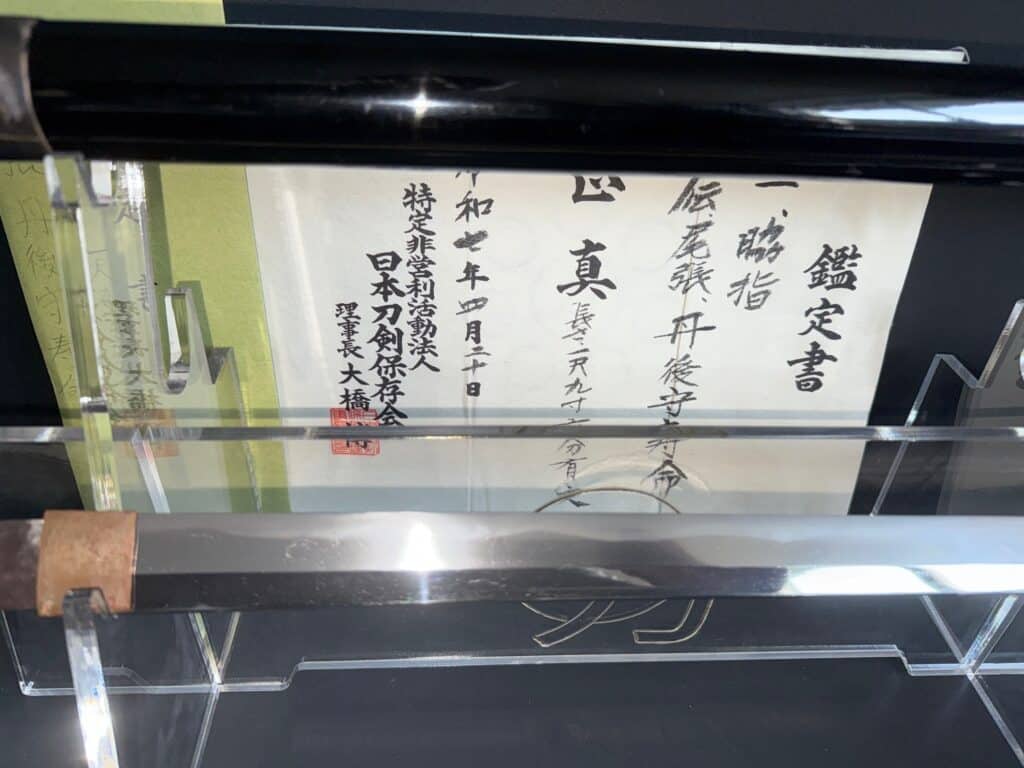 鑑定書
一、脇指
伝、尾張、丹後守寿命
正真
長さ一尺九寸 分有之
令和七年四月二十日
特定非営利活動法人
日本刀剣保存会
理事長 大橋
丹後守寿